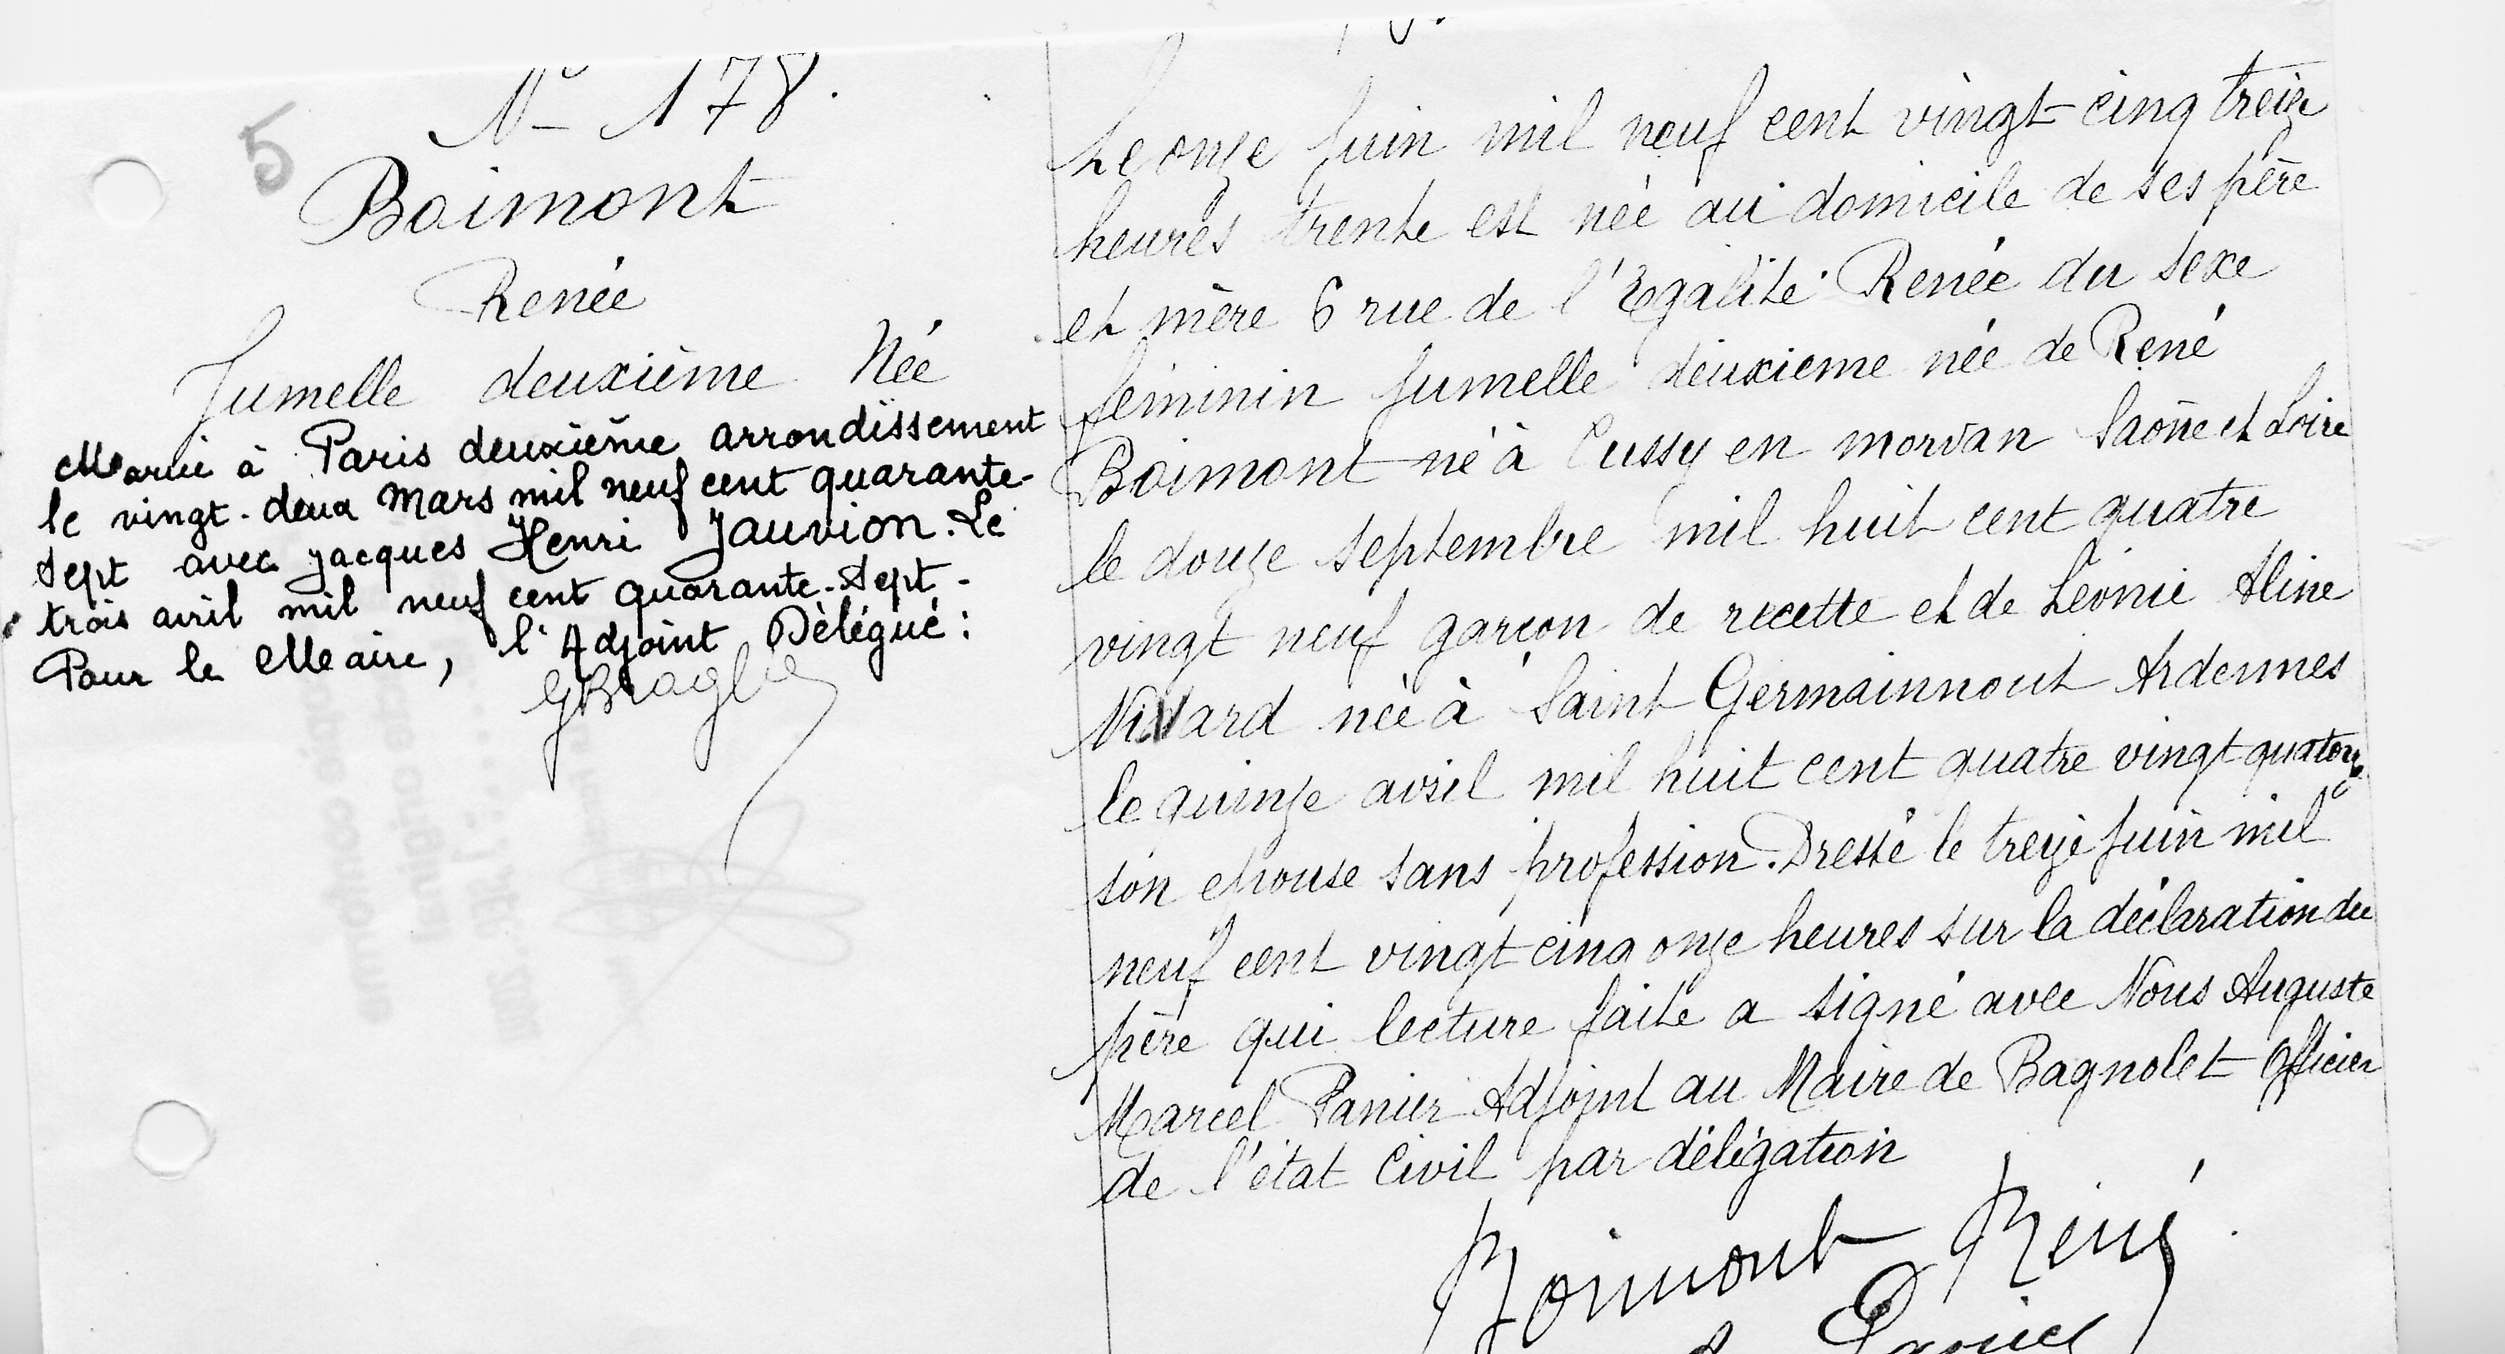 5
N° 178.
Boimont
Renée
Jumelle deuxième Née
Mariée à Paris deuxième arrondissement
le vingt-deux Mars mil neuf cent quarante-
sept avec Jacques Henri Jauvion. Le
trois avril mil neuf cent quarante-sept-
Pour le Maire, l'Adjoint Délégué:
Le onze Juin mil neuf cent vingt-cinq treize
heures trente est née au domicile de ses père
et mère 6 rue de l'Egalité Renée du sexe
féminin Jumelle deuxième née de René
Boimont né à Cussy en morvan Saône et Loire
le douze septembre mil huit cent quatre
vingt neuf garçon de recette et de Léonie Aline
née à Saint Germainmont Ardennes
le quinze avril mil huit cent quatre vingt quatorze
son épouse sans profession. Dressé le treize Juin mil
neuf cent vingt cinq onze heures sur la déclaration du
père qui lecture faite a signé avec Nous Auguste
Marcel Panier Adjoint au Maire de Bagnolet Officier
de l'état Civil par délégation
Boimont René
Panier